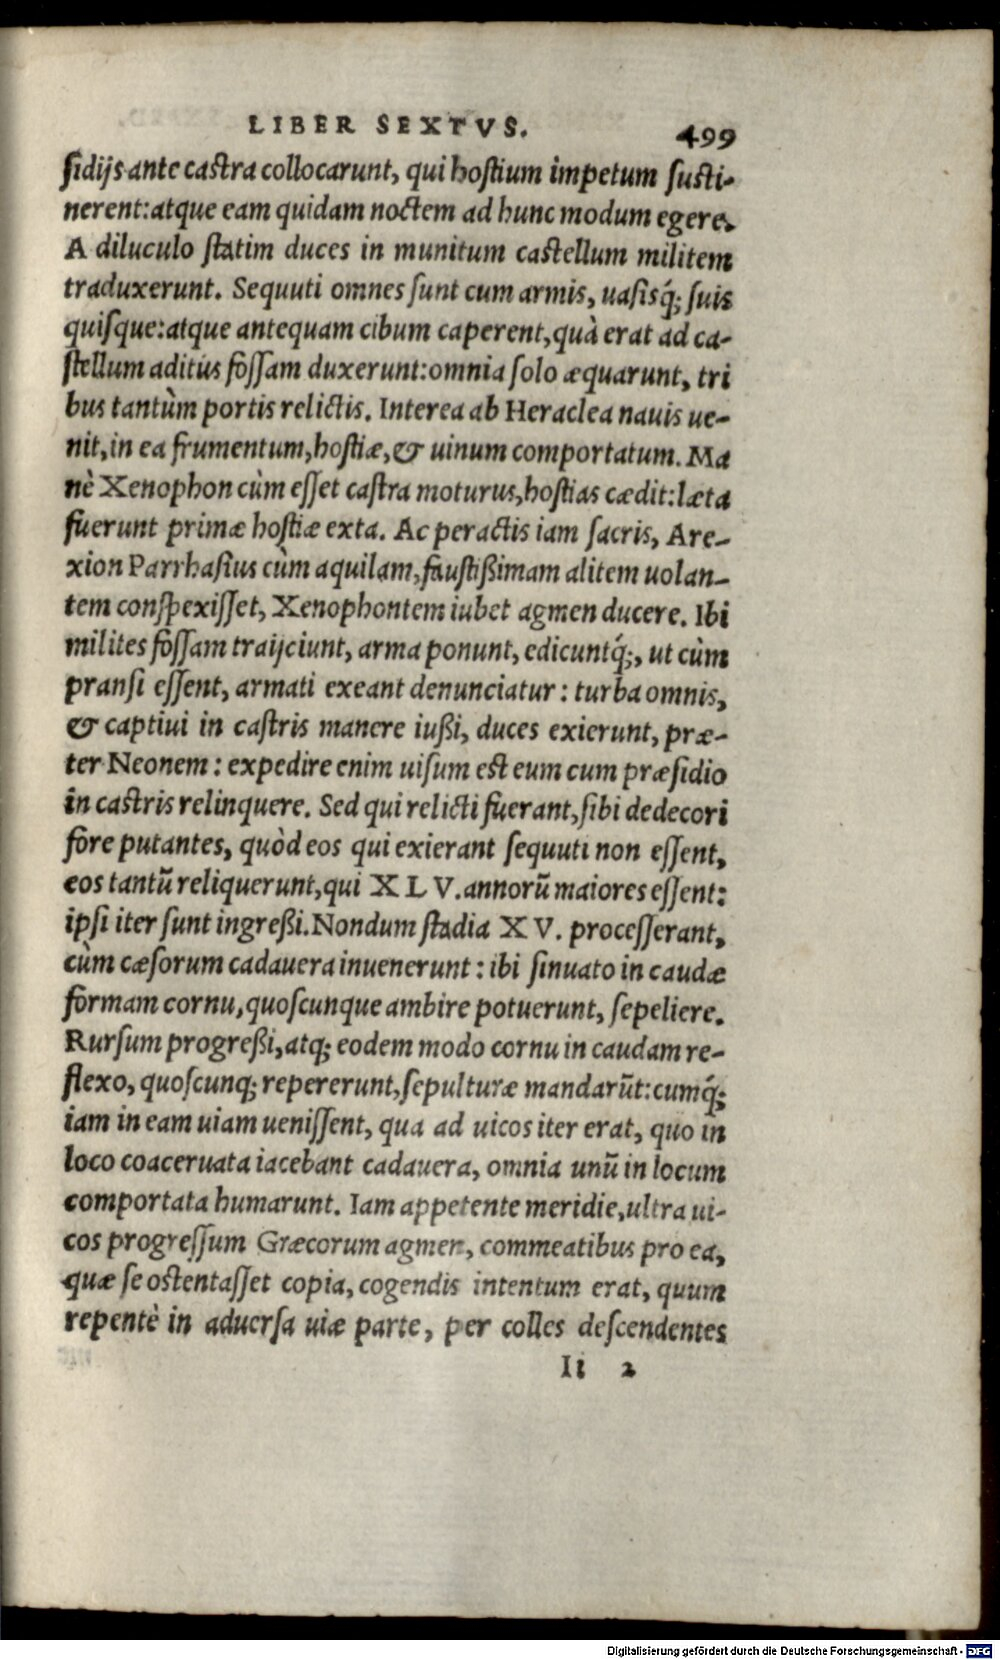 LIBER SEXTVS. 499
ſidijs ante caſtra collocarunt, qui hoſtium impetum ſuſti-
nerent: atque eam quidam noctem ad hunc modum egere.
A diluculo ſtatim duces in munitum caſtellum militem
traduxerunt. Sequuti omnes ſunt cum armis, uaſisq́; ſuis
quiſque: atque antequam cibum caperent, quà erat ad ca-
ſtellum aditus foſſam duxerunt: omnia ſolo æquarunt, tri
bus tantùm portis relictis. Interea ab Heraclea nauis ue-
nit, in ea frumentum, hoſtiæ, & uinum comportatum. Ma
nè Xenophon cùm eſſet caſtra moturus, hoſtias cædit: læta
fuerunt primæ hoſtiæ exta. Ac peractis iam ſacris, Are-
xion Parrhaſius cùm aquilam, fauſtißimam alitem uolan-
tem conſpexiſſet, Xenophontem iubet agmen ducere. Ibi
milites foſſam traijciunt, arma ponunt, edicuntq́;, ut cùm
pranſi eſſent, armati exeant denunciatur: turba omnis,
& captiui in caſtris manere iußi, duces exierunt, præ-
ter Neonem: expedire enim uiſum eſt eum cum præſidio
in caſtris relinquere. Sed qui relicti fuerant, ſibi dedecori
fore putantes, quòd eos qui exierant ſequuti non eſſent,
eos tantũ reliquerunt, qui XLV. annorũ maiores eſſent:
ipſi iter ſunt ingreßi. Nondum ſtadia XV. proceſſerant,
cùm cæſorum cadauera inuenerunt: ibi ſinuato in caudæ
formam cornu, quoſcunque ambire potuerunt, ſepeliere.
Rurſum progreßi, atq; eodem modo cornu in caudam re-
flexo, quoſcunq; repererunt, ſepulturæ mandarũt: cumq́;
iam in eam uiam ueniſſent, qua ad uicos iter erat, quo in
loco coaceruata iacebant cadauera, omnia unũ in locum
comportata humarunt. Iam appetente meridie, ultra ui-
cos progreſſum Græcorum agmen, commeatibus pro ea,
quæ ſe oſtentaſſet copia, cogendis intentum erat, quum
repentè in aduerſa uiæ parte, per colles deſcendentes
Ii 2
Digitalisierung gefördert durch die Deutsche Forschungsgemeinschaft - DFG